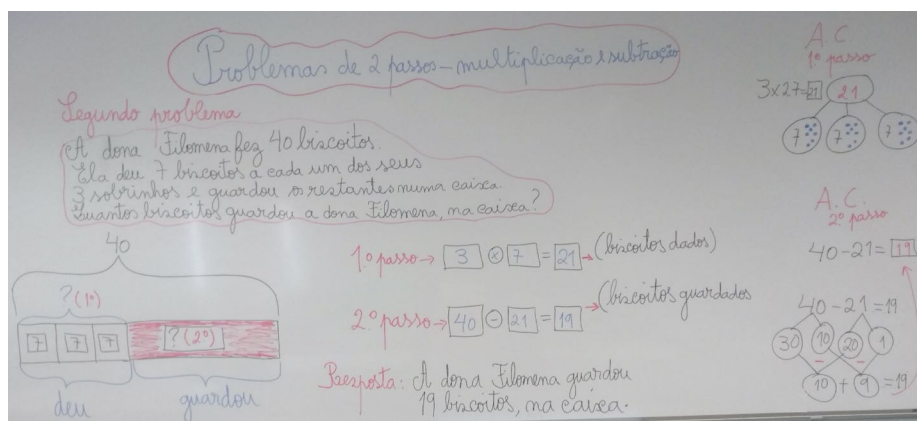 Problemas de 2 passos - multiplicação e subtração
Segundo problema
A dona Filomena fez 40 biscoitos.
Ela deu 7 biscoitos a cada um dos seus
3 sobrinhos e guardou os restantes numa caixa.
Quantos biscoitos guardou a dona Filomena, na caixa?
40
?(1º)
7 7 7 ?(2º)
deu guardou
1º passo → 3 × 7 = 21 → (biscoitos dados)
2º passo → 40 - 21 = 19 → (biscoitos guardados
Resposta: A dona Filomena guardou
19 biscoitos, na caixa.
A.C.
1º passo
3x27=21 21
7 7 7
A.C.
2º passo
40-21=19
40-21=19
30 10 20 1
- -
10 + 9 = 19